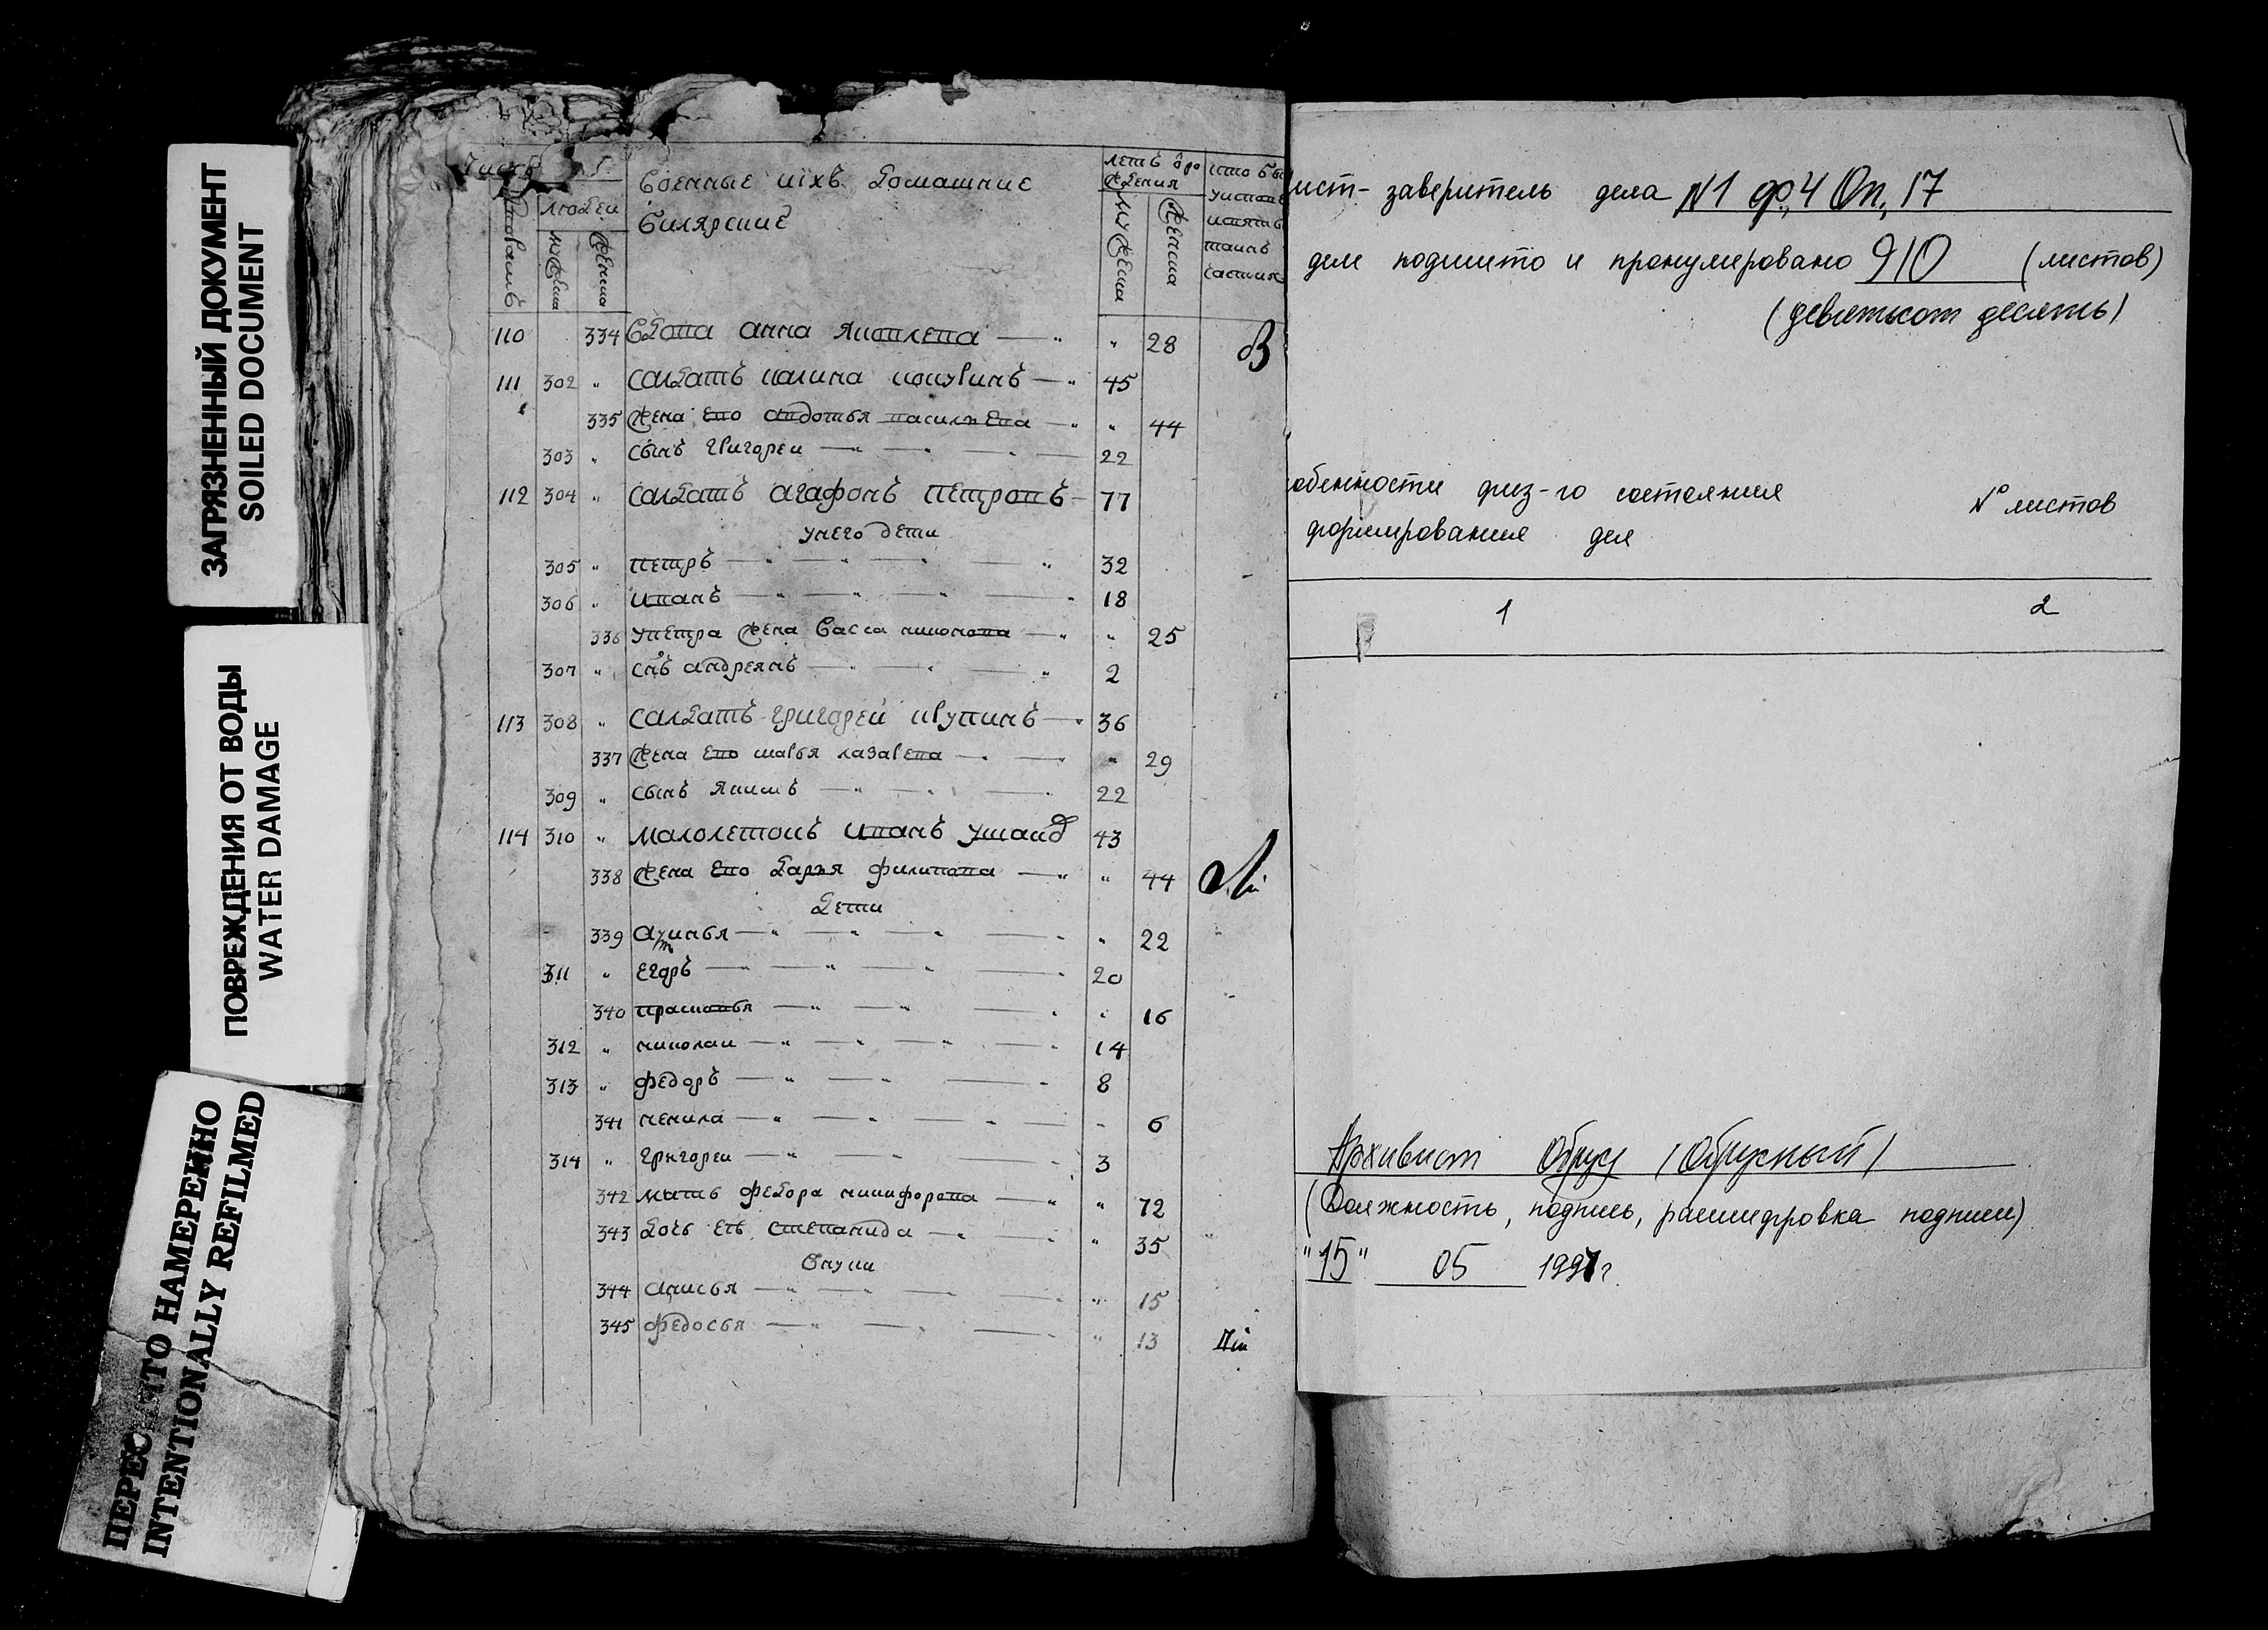 ЗАГРЯЗНЕННЫЙ ДОКУМЕНТ
SOILED DOCUMENT
ПОВРЕЖДЕНИЯ ОТ ВОДЫ
WATER DAMAGE
ПЕРЕСНЯТО НАМЕРЕННО
INTENTIONALLY REFILMED
число
людей
мужеска
женска
Военные иихъ домашние
Билярские
летъ отро
ждения
мужеска
женска
110 334 вдова анна яковлева 28
111 302 салдатъ 45
335 жена ево авдотья васильева 44
303 сынъ григореи 22
112 304 салдатъ агафонъ петровъ 77
унего дети
305 петръ 32
306 иванъ 18
336 упетра жена васса никонова 25
307 снъ андреянъ 2
113 308 салдатъ григорей 36
337 жена ево марья лазарева 29
309 сынъ якимъ 22
114 310 малолетокъ иванъ ушаков 43
338 жена ево дарья филипова 44
дети
339 22
311 егоръ 20
340 прасковья 16
312 николаи 14
313 федоръ 8
341 ненила 6
314 григореи 3
342 мать федора никифорова 72
343 дочь еѣ степанида 35
внуки
344 анисья 15
345 федосья 13
ист-заверитель дела №1 ф.4 Оп. 17
деле подшито и пронумеровано 910 (листов)
(девятьсот десять)
обенности физ-го состояния
формирования дел
№ листов
1 2
Архивист Обрус (Обрусный)
(Должность, подпись, расшифровка подписи)
"15" 05 1997г.